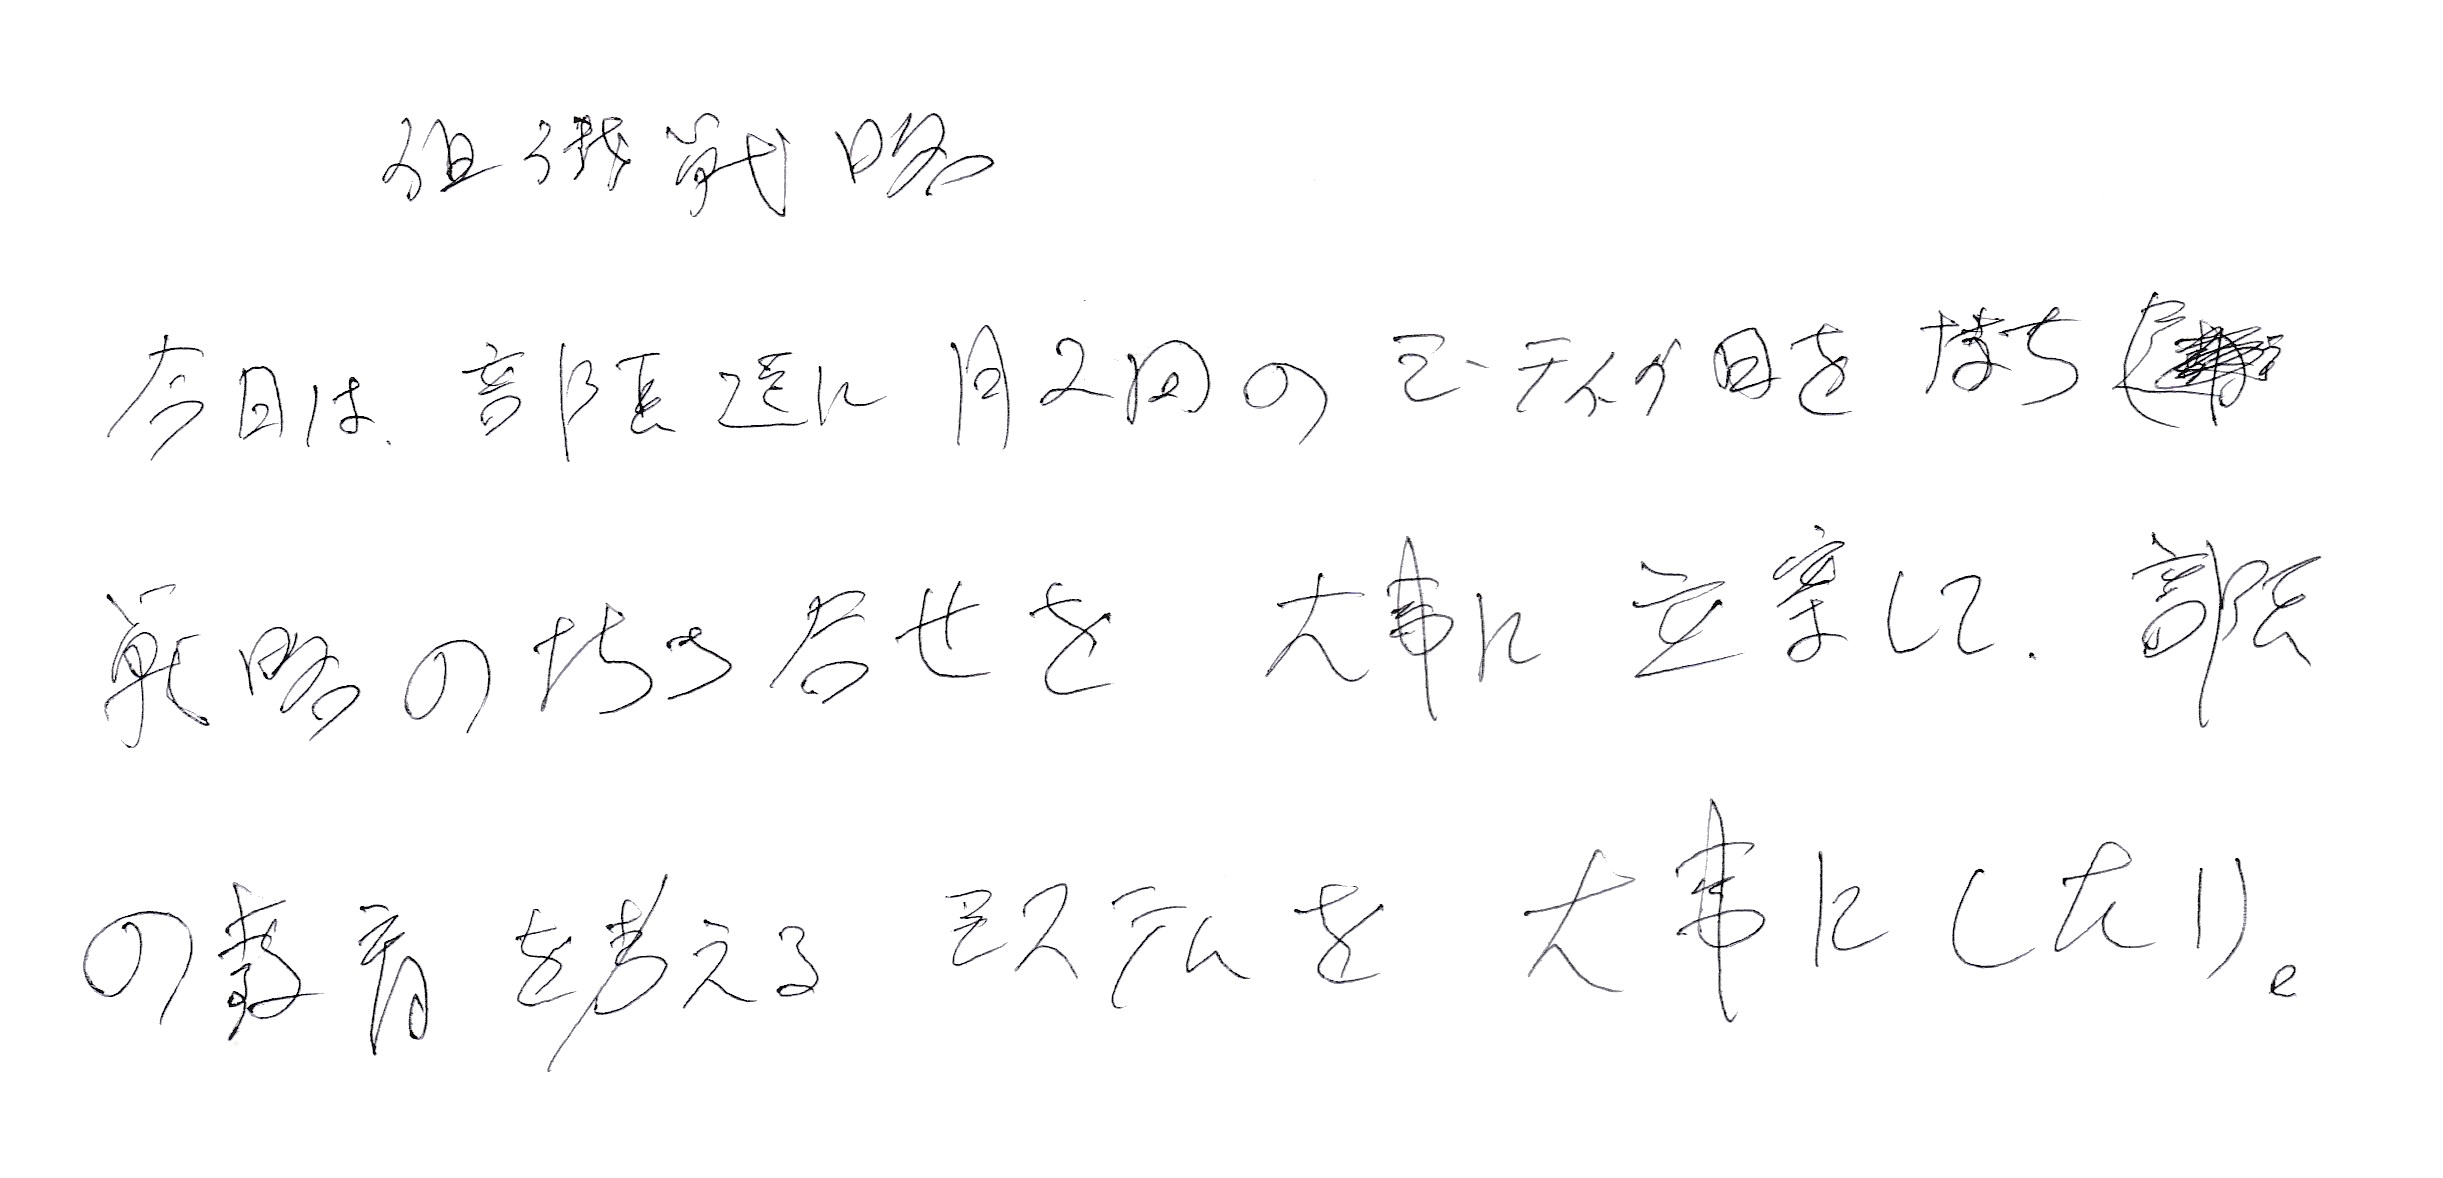 組織戦略
今日は、部長達に月2回のミーティング日を持ち
戦略の打ち合せを大事に立案して、部長
の教育を考えるシステムを大事にしたい。